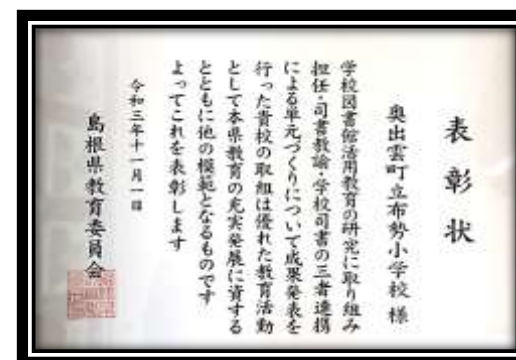 表彰状
奥出雲町立布勢小学校様
学校図書館活用教育の研究に取り組み
担任・司書教諭・学校司書の三者連携
による単元づくりについて成果発表を
行った貴校の取組は優れた教育活動
として本県教育の充実発展に資する
とともに他の模範となるものです
よってこれを表彰します
令和三年十一月一日
島根県教育委員会